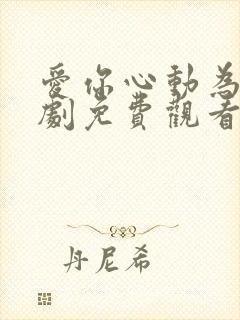 愛你心動為
劇免費觀看
丹尼希